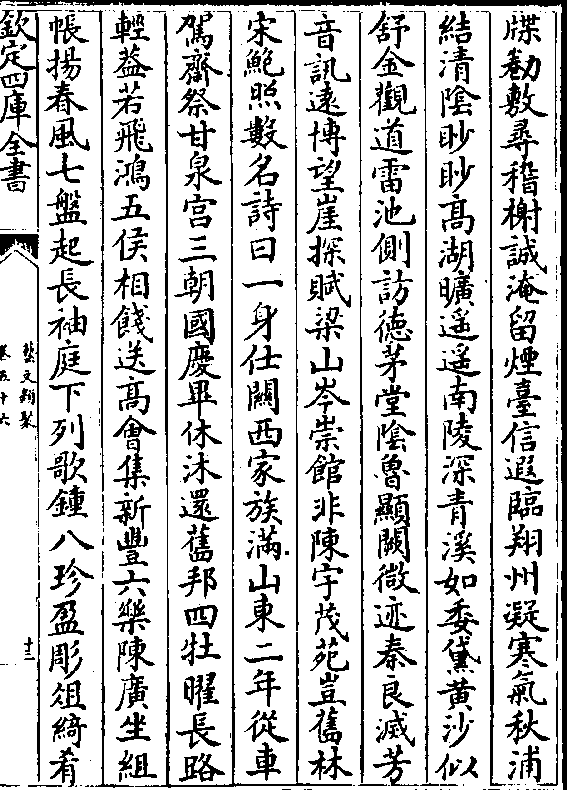 牒勸敷尋稽榭誠淹留煙臺信遐臨翔州凝寒氣秋浦
結清陰眇眇高湖曠遥遥南陵深青溪如委黛黄沙似
舒金觀道雷池側訪德茅堂陰魯顯闕微迹秦良滅芳
音訊遠博望崖探賦梁山岑崇館非陳宇茂苑豈舊林
宋鮑照數名詩曰一身仕關西家族滿山東二年從車
駕齋祭甘泉宫三朝國慶畢休沐還舊邦四牡曜長路
輕葢若飛鴻五侯相餞送高會集新豐六樂陳廣坐組
帳揚春風七盤起長袖庭下列歌鍾八珍盈彫俎綺肴
欽定四庫全書
藝文類聚
卷五十六
十三